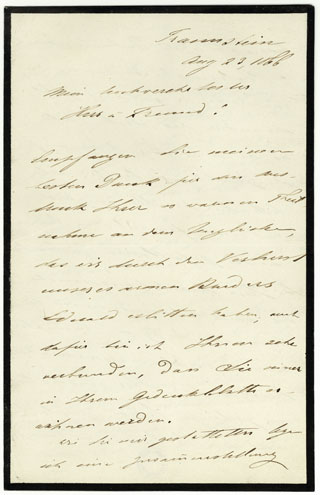 Traunstein
Aug 23 1866
Mein hochverehrtester
Herr u Freund!
Empfangen Sie meinen
besten Dank, für den Aus-
druck Ihrer so warmen Theil
nahme an dem Unglücke,
das wir durch den Verlust
unseres armen Bruders
Eduard erlitten haben, auch
dafür bin ich Ihnen sehr
verbunden, dass Sie seiner
in Ihrem Gedenkblatte er-
wähnen werden.
ich eine Zusammenstellung